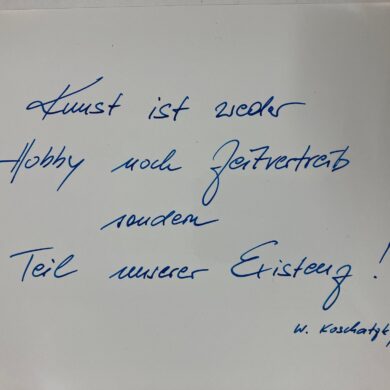 Kunst ist weder
Hobby noch Zeitvertreib
sondern
Teil unserer Existenz!
W. Koschatzky